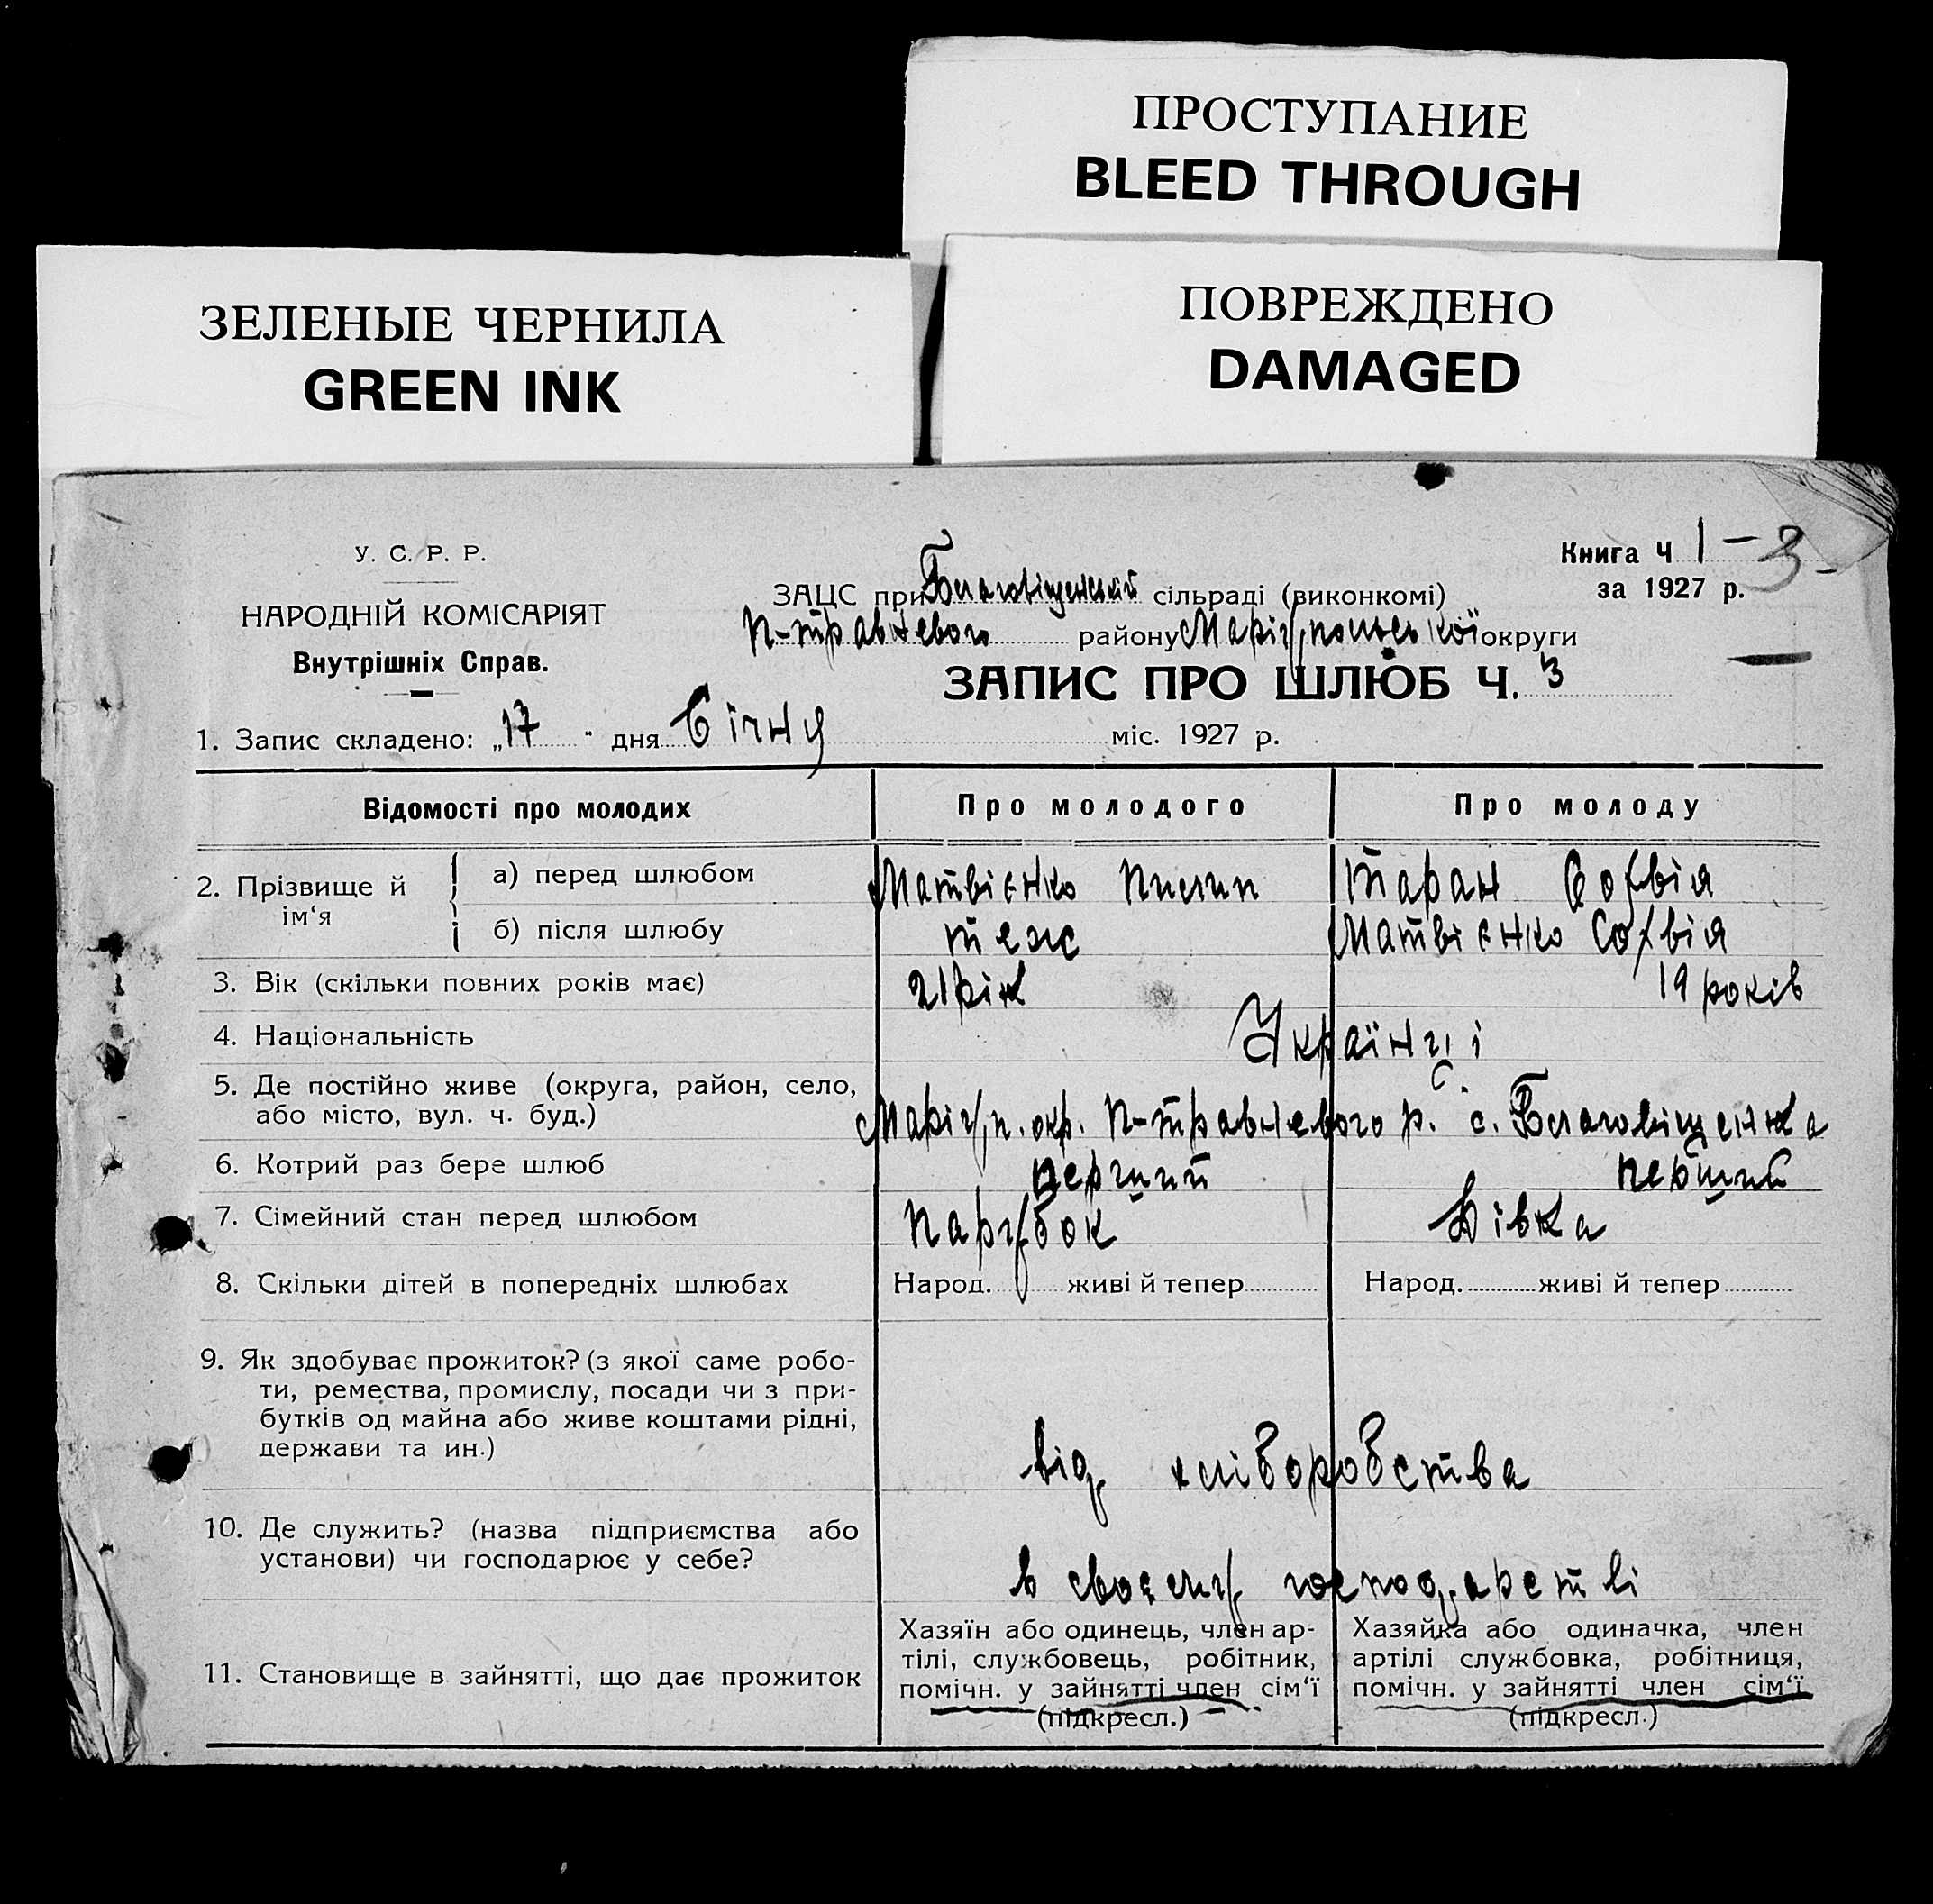 ПРОСТУПАНИЕ
BLEED THROUGH
ЗЕЛЕНЫЕ ЧЕРНИЛА
GREEN INK
ПОВРЕЖДЕНО
DAMAGED
У. С. Р. Р.
НАРОДНІЙ КОМІСАРІЯТ
Внутрішніх Справ.
Книга Ч 1 - 3
за 1927 р.
ЗАЦС при Благовіщенській сільраді (виконкомі)
П-травневого району Маріупольської округи
ЗАПИС ПРО ШЛЮБ Ч. 3
1. Запис складено: „17" дня Січня міс. 1927 р.
Відомості про молодих Про молодого Про молоду
2. Прізвище й ім‘я а) перед шлюбом Матвієнко Пилип Таран Софвія
б) після шлюбу теж Матвієнко Софвія
3. Вік (скільки повних років має) 21 рік 19 років
4. Національність Українці
5. Де постійно живе (округа, район, село,
або місто, вул. ч. буд.) Маріуп. окр. П-травневого р. с. Благовіщенка
6. Котрий раз бере шлюб перший перший
7. Сімейний стан перед шлюбом парубок Дівка
8. Скільки дітей в попередніх шлюбах Народ. живі й тепер Народ. живі й тепер
9. Як здобуває прожиток? (з якої саме робо-
ти, ремества, промислу, посади чи з при-
бутків од майна або живе коштами рідні,
держави та ин.) від хліборобства
10. Де служить? (назва підприємства або
установи) чи господарює у себе? в своєму господарстві
11. Становище в зайнятті, що дає прожиток
Хазяїн або одинець, член ар-
тілі, службовець, робітник,
помічн. у зайнятті член сім‘ї
(підкресл.)
Хазяйка або одиначка, член
артілі службовка, робітниця,
помічн. у зайнятті член сім‘ї
(підкресл.)